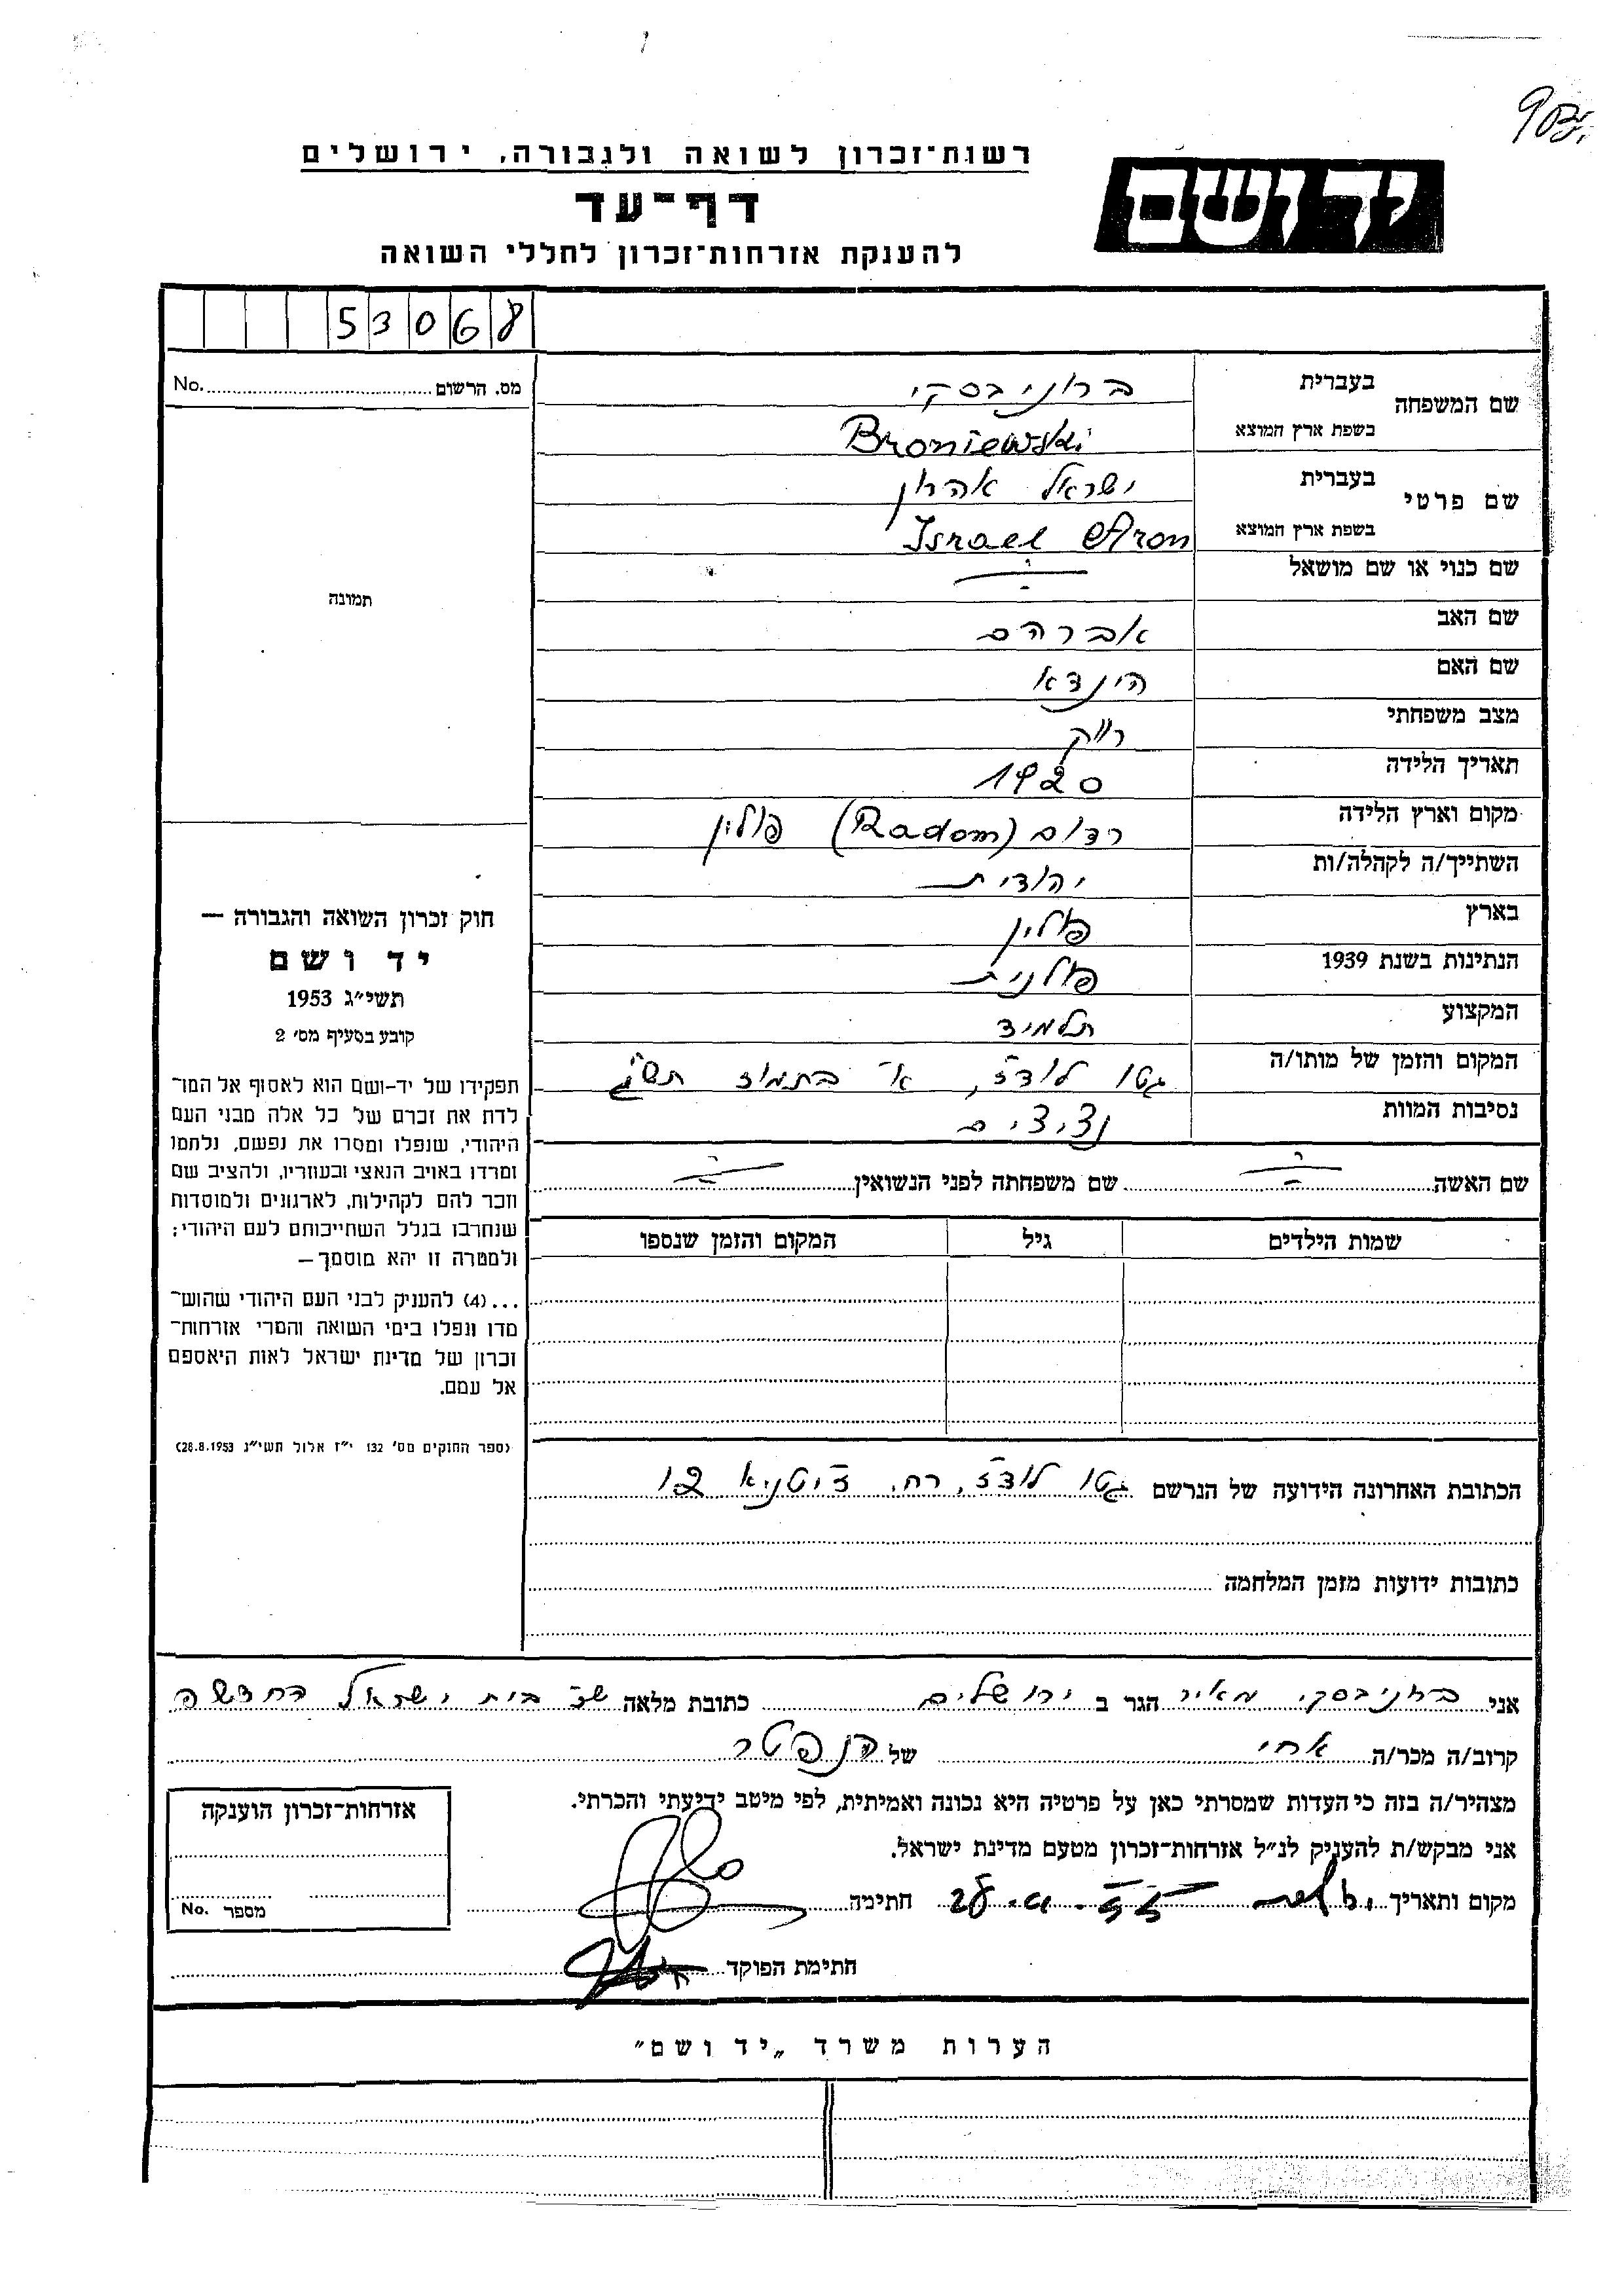 רשות־זכרון לשואה ולגבורה, ירושלים
יד ושם
דף־עד
להענקת אזרחות־זכרון לחללי השואה
53068
מס. הרשום No.
תמונה
חוק זכרון השואה והגבורה —
יד ושם
תשי״ג 1953
קובע בסעיף מס׳ 2
תפקידו של יד־ושם הוא לאסוף אל המו־
לדת את זכרם של כל אלה מבני העם
היהודי, שנפלו ומסרו את נפשם, נלחמו
ומרדו באויב הנאצי ובעוזריו, ולהציב שם
וזכר להם לקהילות, לארגונים ולמוסדות
שנחרבו בגלל השתייכותם לעם היהודי;
ולמטרה זו יהא מוסמך —
...(4) להעניק לבני העם היהודי שהוש־
מדו ונפלו בימי השואה והמרי אזרחות־
זכרון של מדינת ישראל לאות היאספם
אל עמם.
(ספר החוקים מס׳ 132 י״ז אלול תשי״ג 28.8.1953)
שם המשפחה בעברית ברוניבסקי
בשפת ארץ המוצא Broniewski
שם פרטי בעברית ישראל אהרון
בשפת ארץ המוצא Israel Aron
שם כנוי או שם מושאל
שם האב אברהם
שם האם הינדא
מצב משפחתי רווק
תאריך הלידה 1920
מקום וארץ הלידה רדום (Radom) פולין
השתייך/ה לקהלה/ות יהודית
בארץ פולין
הנתינות בשנת 1939 פולנית
המקצוע תלמיד
המקום והזמן של מותו/ה גטו לודז׳, א׳ בתמוז תש״ג
נסיבות המוות
שם האשה שם משפחתה לפני הנשואין
שמות הילדים גיל המקום והזמן שנספו
הכתובת האחרונה הידועה של הנרשם גטו לודז׳, רח. 12
כתובות ידועות מזמן המלחמה
אני ברוניבסקי מאיר הגר ב ירושלים כתובת מלאה בית ישראל החדשה
קרוב/ה מכר/ה אחי של הנפטר
מצהיר/ה בזה כי העדות שמסרתי כאן על פרטיה היא נכונה ואמיתית, לפי מיטב ידיעתי והכרתי.
אני מבקש/ת להעניק לנ״ל אזרחות־זכרון מטעם מדינת ישראל.
מקום ותאריך חתימה
חתימת הפוקד
אזרחות־זכרון הוענקה
מספר No.
הערות משרד „יד ושם״